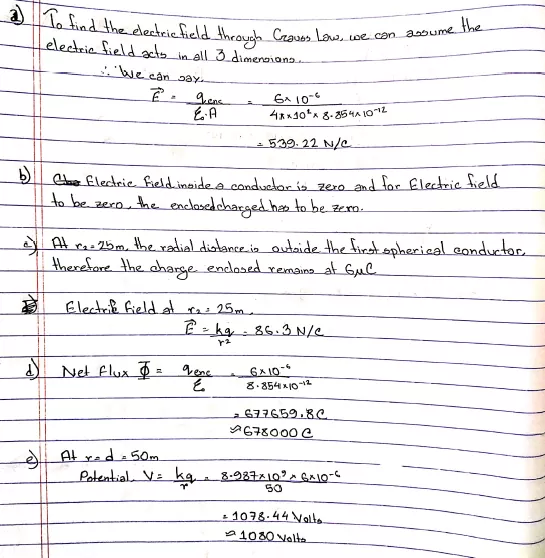 a) To find the electric field through Gauss Law, we can assume the
electric field acts in all 3 dimensions.
∴ We can say,
E⃗ = qenc / ε.A = 6×10⁻⁶ / 4π×10²×8.854×10⁻¹²
= 539.22 N/C
b) Electric field inside a conductor is zero and for Electric field
to be zero, the enclosed charged has to be zero.
c) At r₂=25m, the radial distance is outside the first spherical conductor,
therefore the charge enclosed remains at 6μC
Electric field at r₂ = 25m,
E⃗ = kq / r² = 86.3 N/C
d) Net flux Φ = qenc / ε. = 6×10⁻⁶ / 8.854×10⁻¹²
= 677659.8C
≈678000C
e) At r=d=50m
Potential, V = kq / r = 8.987×10⁹×6×10⁻⁶ / 50
= 1078.44 Volts
≈1080 Volts